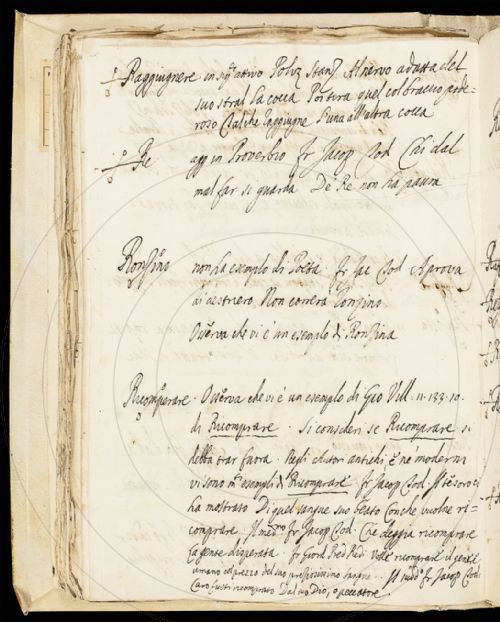 Raggiugnere in sigto attivo Poliz Stanz Al nervo adatta del
suo stral la cocca Poi tira quel col braccio pode=
roso Tal che raggiugne l'una all'altra cocca
Re agg in Proverbio Fr Jacop Tod Chi dal
mal far si guarda De Re non ha paura
Ronzino non ha esempio di Poeta. Fr Jac Tod A prova
di destriero Non correrà Ronzino
Osserva che vi è un esempio di Ronzina
Ricomperare. Osserva che vi è un esempio di Gio Vill. 11. 133. 10.
di Ricomprare. Si consideri se Ricomprare si
debba trar fuora. Negli Autori antichi e ne' moderni
vi sono mti esempli di Ricomprare. Fr Jacop Tod. Il tesoro ci
ha mostrato Di quel sangue suo beato Con che vuolne ri=
comprare. Il medmo Fr Jacop Tod. Che deggia ricomprare
La gente disperata. Fr Giord Pred Red. Volle ricomprare il genere
umano col prezzo del suo preziosissimo sangue. Il medo Fr Jacop Tod.
Caro fusti ricomprato Dal tuo Dio, o peccatore